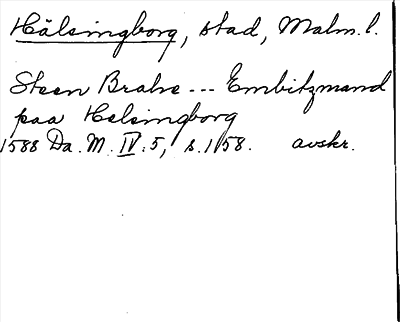 Hälsingborg, stad, Malm. l.
Steen Brahe --- Embitzmand
paa Helsingborg
1588 Da. M. IV: 5, s. 158. avskr.